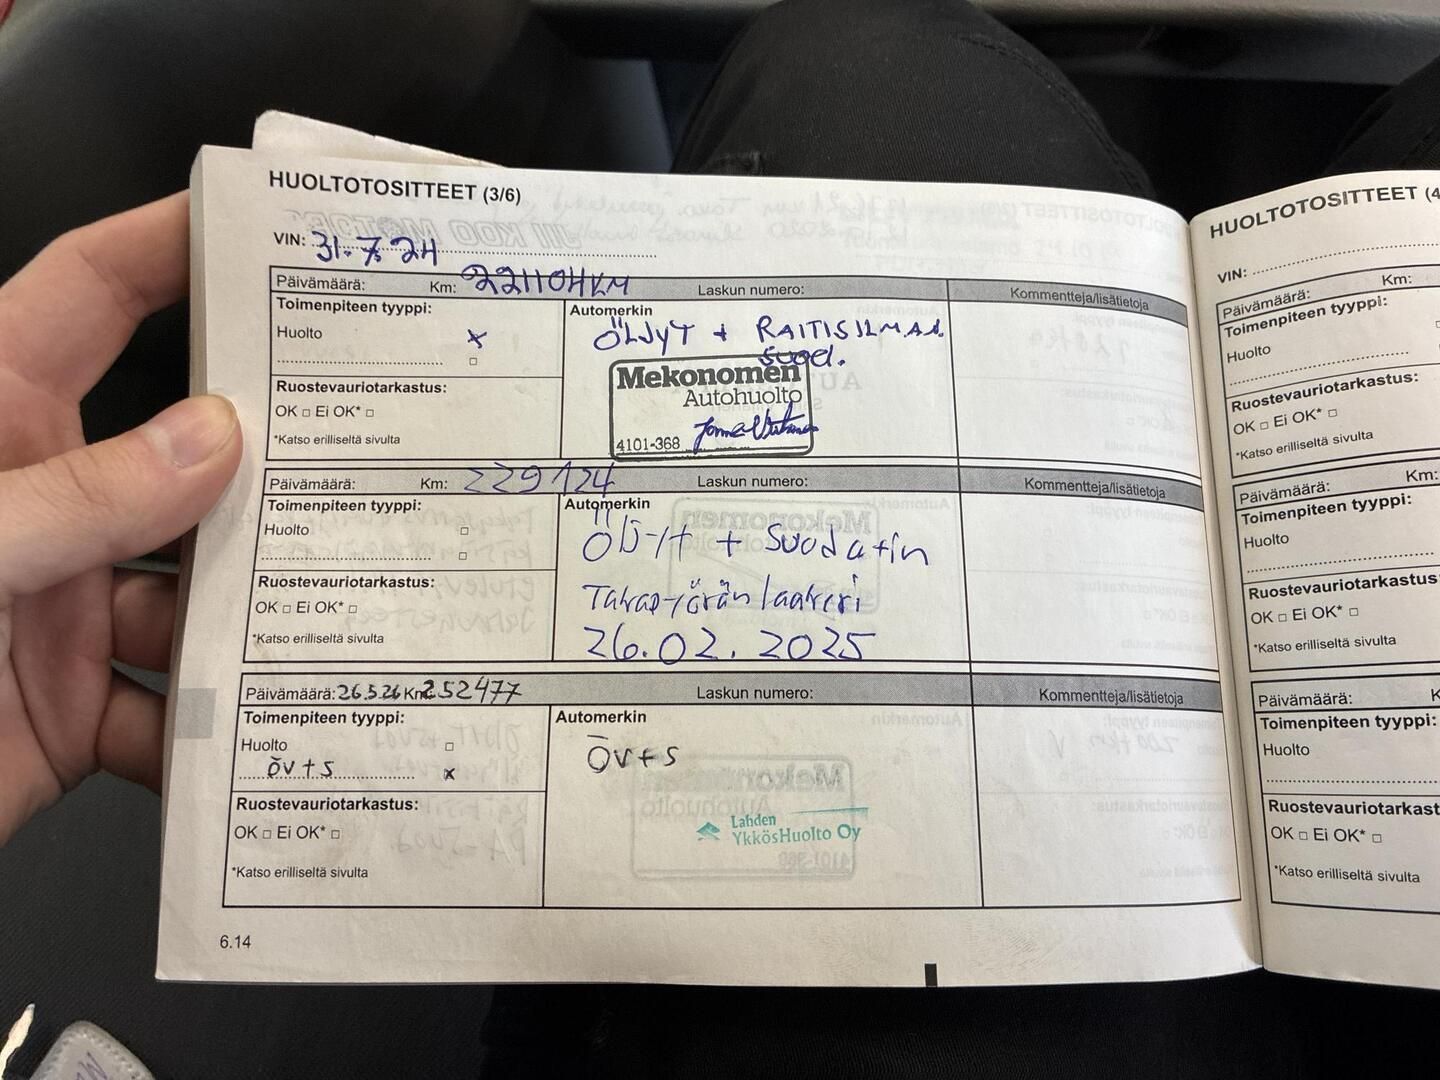 HUOLTOTOSITTEET (3/6)
VIN: 31.7.24
Päivämäärä: Km: 221104KM Laskun numero: Kommentteja/lisätietoja
Toimenpiteen tyyppi:
Automerkin
Huolto x
ÖLJYT + RAITISILMAS.
SUOD.
□
Mekonomen
Autohuolto
4101-368
Ruostevauriotarkastus:
OK □ Ei OK* □
*Katso erilliseltä sivulta
Päivämäärä: Km: 229124 Laskun numero: Kommentteja/lisätietoja
Toimenpiteen tyyppi:
Automerkin
Huolto □
□
Öljyt + Suodatin
Takapyörän laakeri
26.02.2025
Ruostevauriotarkastus:
OK □ Ei OK* □
*Katso erilliseltä sivulta
Päivämäärä: 26.5.26 Km: 252477 Laskun numero: Kommentteja/lisätietoja
Toimenpiteen tyyppi:
Automerkin
Huolto □
öv+s x
Öv+s
Lahden
YkkösHuolto Oy
Ruostevauriotarkastus:
OK □ Ei OK* □
*Katso erilliseltä sivulta
6.14
HUOLTOTOSITTEET (4
VIN:
Päivämäärä: Km:
Toimenpiteen tyyppi:
Huolto
Ruostevauriotarkastus:
OK □ Ei OK* □
*Katso erilliseltä sivulta
Päivämäärä: Km:
Toimenpiteen tyyppi:
Huolto
Ruostevauriotarkastus:
OK □ Ei OK* □
*Katso erilliseltä sivulta
Päivämäärä: K
Toimenpiteen tyyppi:
Huolto
Ruostevauriotarkast
OK □ Ei OK* □
*Katso erilliseltä sivulta